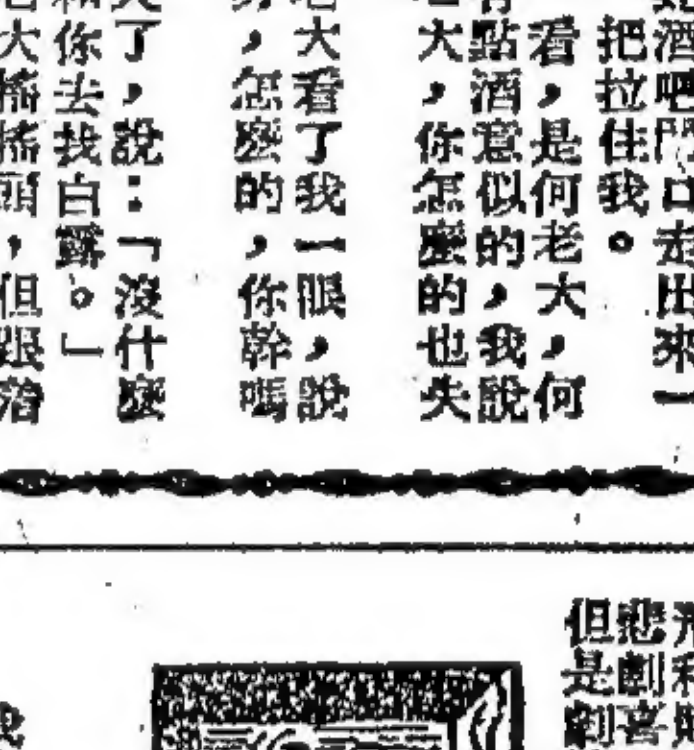 酒吧門口走出來一
把拉住我。
看，是何老大，何
點酒意似的，我說
大，你怎麼的也失
大看了我一眼，說
，怎麼的，你幹嗎
了，說：「沒什麼
你去找白露。」
大搖搖頭，但跟着
悲劇喜
但是劇